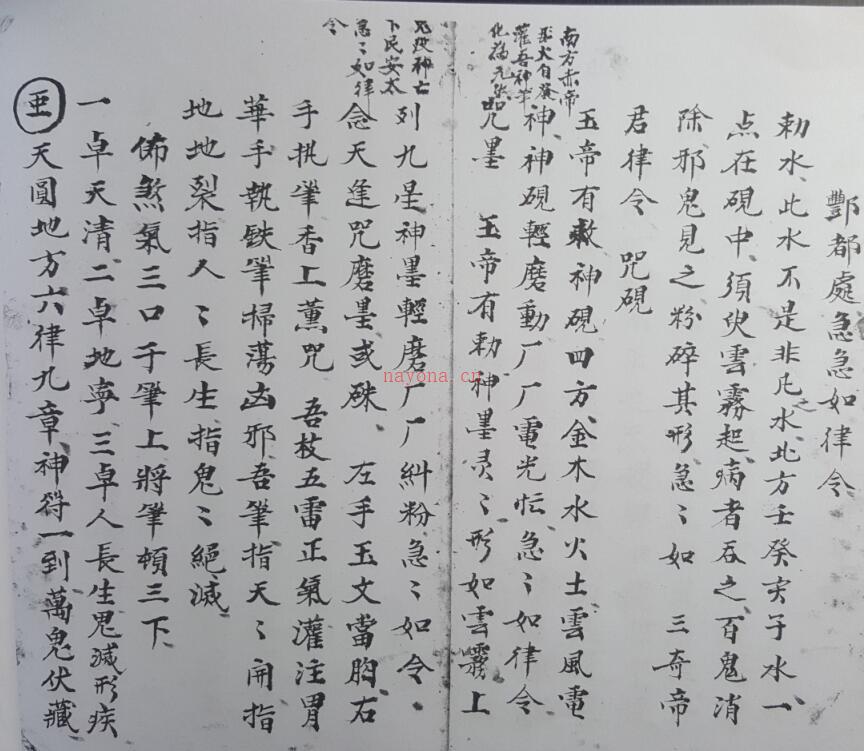 酆都處急急如律令
勅水、此水不是非凡之水、北方壬癸亥子水、一
点在硯中、須臾雲霧起、病者吞之、百鬼消
除、邪鬼見之、粉碎其形、急〻如 三奇帝
君律令 咒硯
玉帝有敕神硯四方、金木水火土雲風電
神、神硯輕磨動、厂厂電光忙、急〻如律令
咒墨 玉帝有勅神墨灵〻、形如雲霧、上
列九星、神墨輕磨、厂厂糾粉、急〻如令、
念天逢咒磨墨或硃、左手玉文當胸、右
手执筆香上薰咒 吾枝五雷正氣灌注胃
華手執鉄筆掃蕩凶邪、吾筆指天〻開指
地地裂指人〻長生、指鬼〻絕滅
佈煞氣三口于筆上將筆頓三下
一卓天清、二卓地寧、三卓人長生鬼滅形疾
天圓地方六律九章、神符一到、萬鬼伏藏
南方赤帝
火自發
吾神筆
化為
兇神亡
下民安太
急〻如律
令
nayona.cn